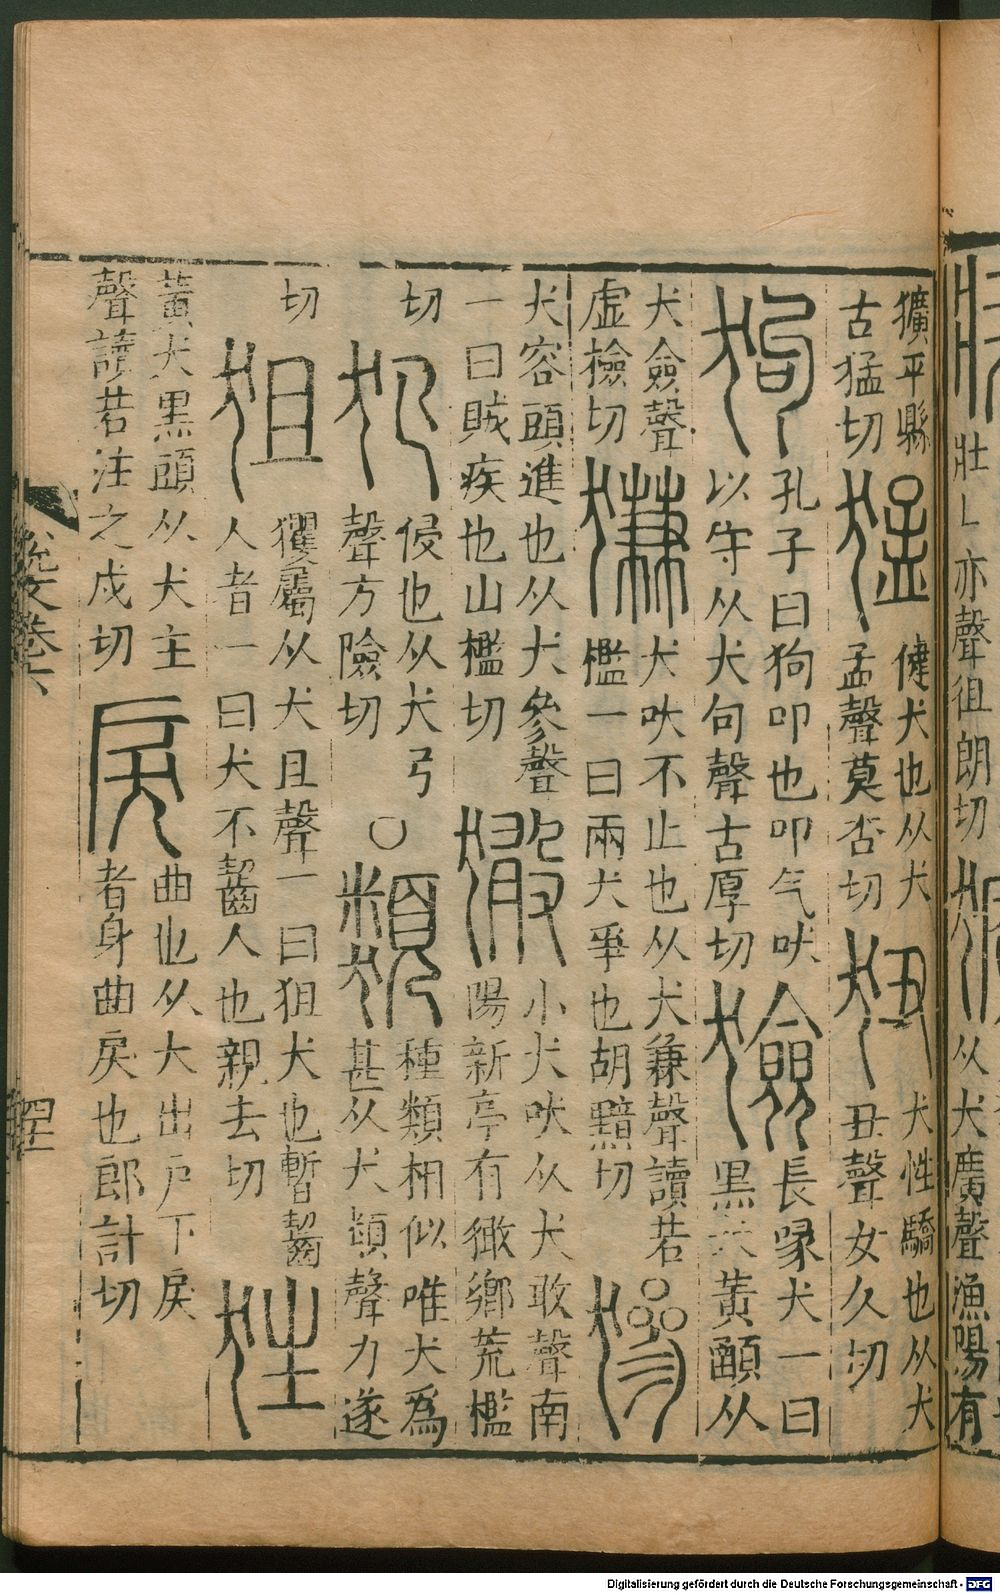 壯乚亦聲徂朗切
从犬廣聲漁陽有
獷平縣
古猛切
猛
健犬也从犬
孟聲莫杏切
狃
犬性驕也从犬
丑聲女久切
狗
孔子曰狗叩也叩气吠
以守从犬句聲古厚切
獫
長喙犬一曰
黑犬黃頤从
犬僉聲
虛檢切
㺌
犬吠不止也从犬兼聲讀若
檻一曰兩犬爭也胡黯切
犬容頭進也从犬參聲
一曰賊疾也山檻切
㺖
小犬吠从犬敢聲南
陽新亭有㺖鄉荒檻
切
犯
侵也从犬㔾
聲方險切
○
類
種類相似唯犬爲
甚从犬頪聲力遂
切
狙
玃屬从犬且聲一曰狙犬也暫齧
人者一曰犬不齧人也親去切
黃犬黑頭从犬主
聲讀若注之戍切
戾
曲也从犬出戶下戾
者身曲戾也郎計切
說文卷六
Digitalisierung gefördert durch die Deutsche Forschungsgemeinschaft - DFG